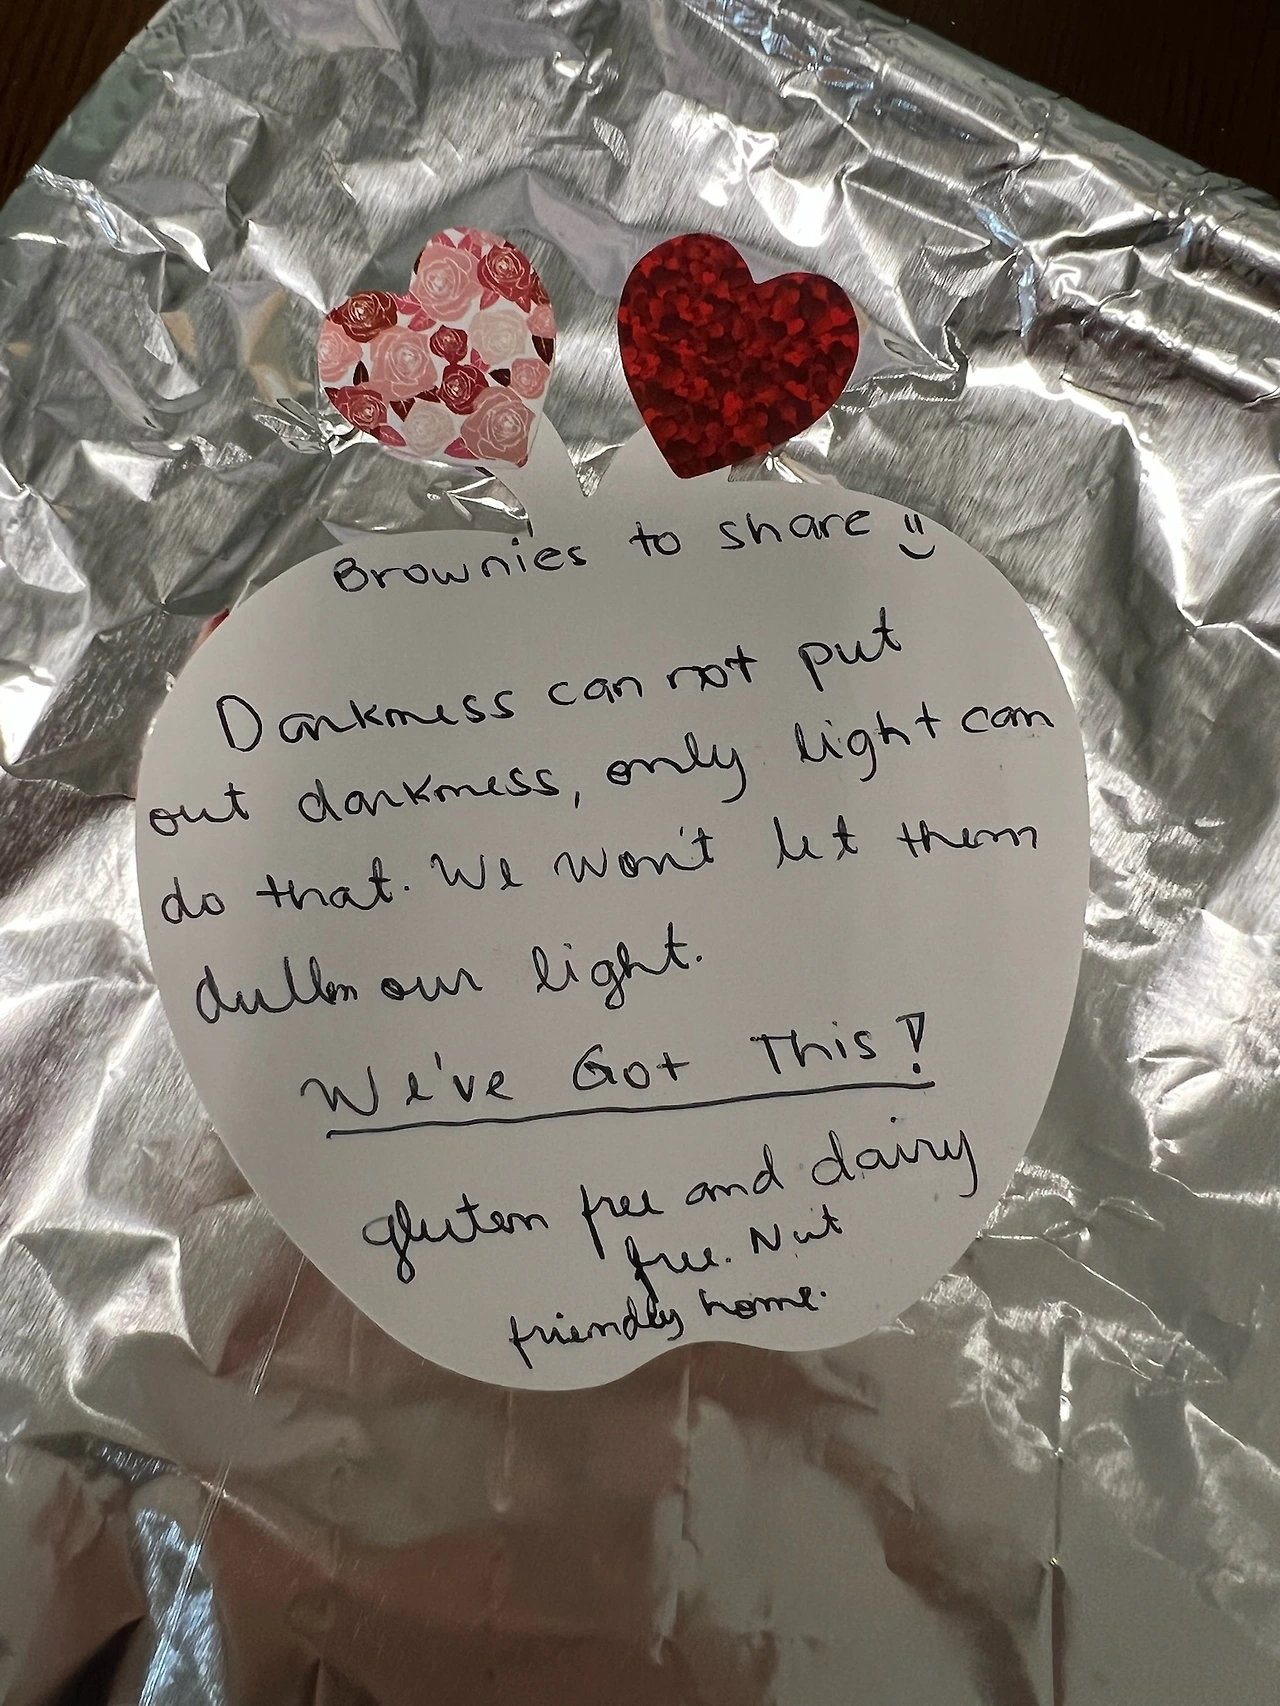 Brownies to share
Darkness can not put
out darkness, only light can
do that. We won't let them
dullen our light.
We've Got This!
gluten free and dairy
free. Nut
friendly home.